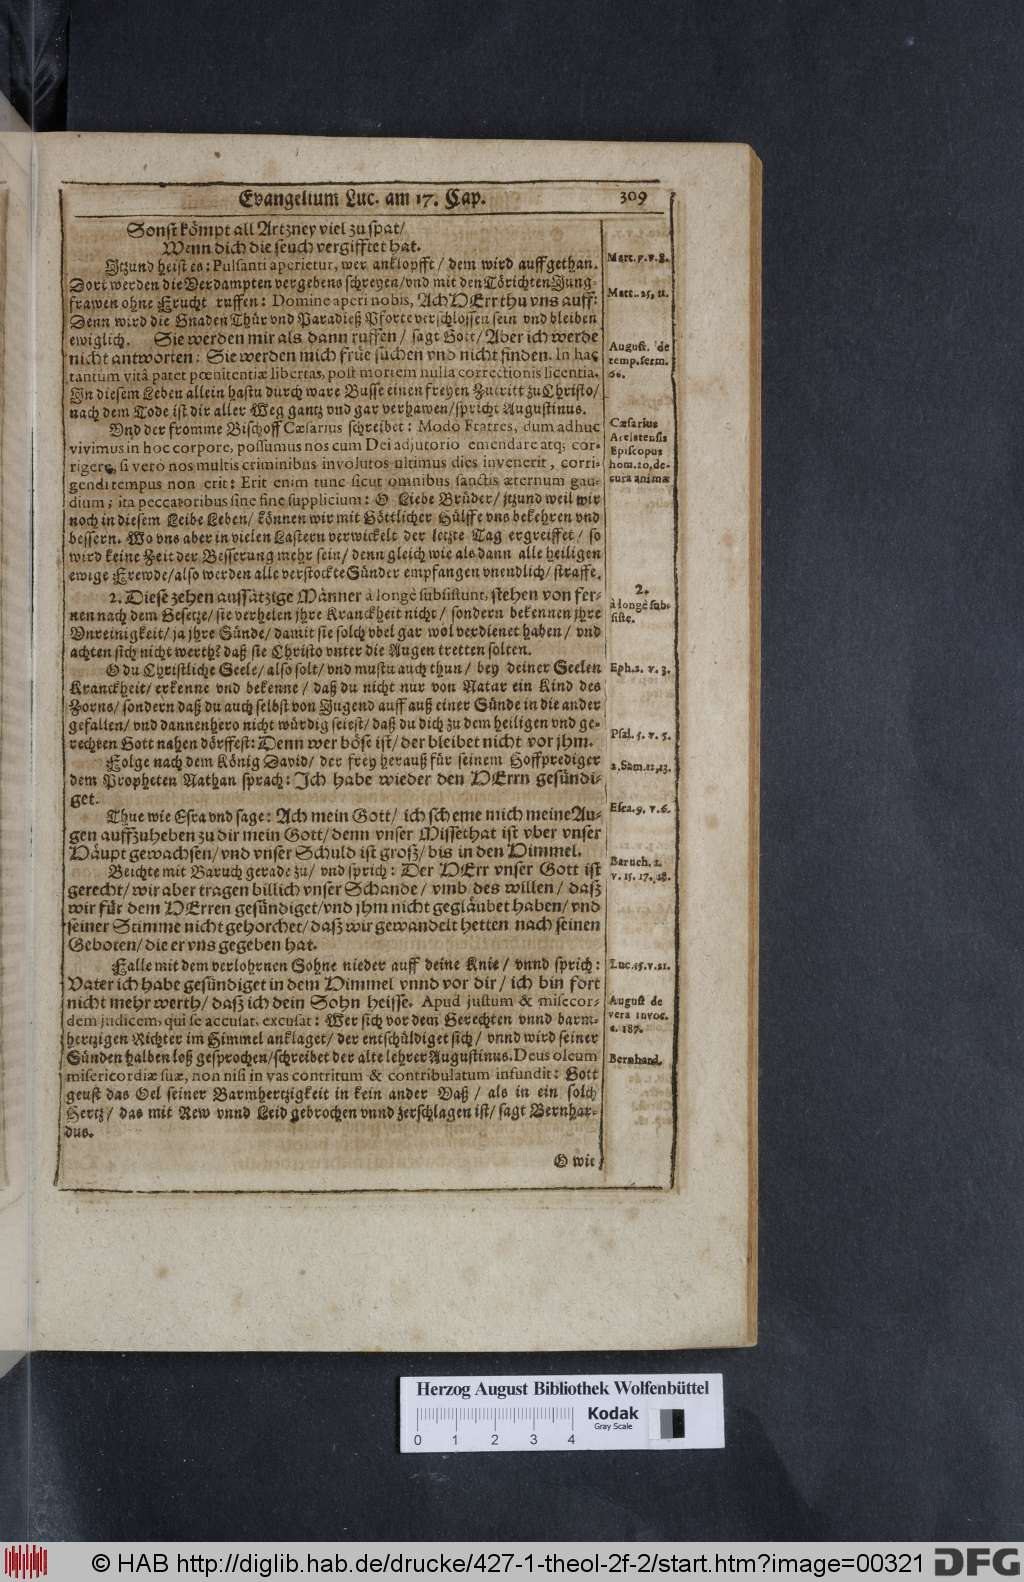 Evangelium Luc. am 17. Cap. 309
Sonst kömpt all Artzney viel zu spat/
Wenn dich die seuch vergifftet hat.
Jtzund heist es: Pulsanti aperietur, wer anklopfft/ dem wird auffgethan.
Dort werden die Verdampten vergebens schreyen/ vnd mit den Törichten Jung-
frawen ohne Frucht ruffen: Domine aperi nobis, Ach HErr thu vns auff:
Denn wird die Gnaden Thür vnd Paradieß Pforte verschlossen sein vnd bleiben
ewiglich. Sie werden mir als dann ruffen/ sagt Gott/ Aber ich werde
nicht antworten: Sie werden mich früe suchen vnd nicht finden. In hac
tantum vitâ patet pœnitentiæ libertas, post mortem nulla correctionis licentia.
Jn diesem Leben allein hastu durch ware Busse einen freyen Zutritt zu Christo/
nach dem Tode ist dir aller Weg gantz vnd gar verhawen/ spricht Augustinus.
Vnd der fromme Bischoff Cæsarius schreibet: Modo Fratres, dum adhuc
vivimus in hoc corpore, possumus nos cum Dei adjutorio emendare atq; cor-
rigere, si vero nos multis criminibus involutos ultimus dies invenerit, corri-
gendi tempus non erit: Erit enim tunc sicut omnibus sanctis æternum gau-
dium; ita peccatoribus sine fine supplicium: O Liebe Brüder/ jtzund weil wir
noch in diesem Leibe Leben/ können wir mit Göttlicher Hülffe vns bekehren vnd
bessern. Wo vns aber in vielen Lastern verwickelt der letzte Tag ergreiffet/ so
wird keine Zeit der Besserung mehr sein/ denn gleich wie als dann alle heiligen
ewige Frewde/ also werden alle verstockte Sünder empfangen vnendlich/ straffe.
2. Diese zehen aussätzige Männer à longè subsistunt, stehen von fer-
nen nach dem Gesetze/ sie verhelen jhre Kranckheit nicht/ sondern bekennen jhre
Vnreinigkeit/ ja jhre Sünde/ damit sie solch vbel gar wol verdienet haben/ vnd
achten sich nicht werth? daß sie Christo vnter die Augen tretten solten.
O du Christliche Seele/ also solt/ vnd mustu auch thun/ bey deiner Seelen
Kranckheit/ erkenne vnd bekenne/ daß du nicht nur von Natur ein Kind des
Zorns/ sondern daß du auch selbst von Jugend auff auß einer Sünde in die ander
gefallen/ vnd dannenhero nicht würdig seiest/ daß du dich zu dem heiligen vnd ge-
rechten Gott nahen dörffest: Denn wer böse ist/ der bleibet nicht vor jhm.
Folge nach dem König David/ der frey herauß für seinem Hoffprediger
dem Propheten Nathan sprach: Jch habe wieder den HErrn gesündi-
get.
Thue wie Esra vnd sage: Ach mein Gott/ ich scheme mich meine Au-
gen auffzuheben zu dir mein Gott/ denn vnser Missethat ist vber vnser
Häupt gewachsen/ vnd vnser Schuld ist groß/ bis in den Himmel.
Beichte mit Baruch gerade zu/ vnd sprich: Der HErr vnser Gott ist
gerecht/ wir aber tragen billich vnser Schande/ vmb des willen/ daß
wir für dem HErren gesündiget/ vnd jhm nicht gegläubet haben/ vnd
seiner Stimme nicht gehorchet/ daß wir gewandelt hetten nach seinen
Geboten/ die er vns gegeben hat.
Falle mit dem verlohrnen Sohne nieder auff deine Knie/ vnnd sprich:
Vater ich habe gesündiget in dem Himmel vnnd vor dir/ ich bin fort
nicht mehr werth/ daß ich dein Sohn heisse. Apud justum & misecor-
dem judicem, qui se accusat, excusat: Wer sich vor dem Gerechten vnnd barm-
hertzigen Richter im Himmel anklaget/ der entschüldiget sich/ vnnd wird seiner
Sünden halben loß gesprochen/ schreibet der alte lehrer Augustinus. Deus oleum
misericordiæ suæ, non nisi in vas contritum & contribulatum infundit: Gott
geust das Oel seiner Barmhertzigkeit in kein ander Vaß/ als in ein solch
Hertz/ das mit Rew vnnd Leid gebrochen vnnd zerschlagen ist/ sagt Bernhar-
dus.
O wie
Matt. 7. v. 8.
Matt. 25, 11.
August. de
temp. serm.
66.
Cæsarius
Arelatensis
Episcopus
hom. 20, de-
cura animæ
2.
à longè sub-
siste.
Eph. 2. v. 3.
Psal. 5. v. 5.
2. Sam. 12, 13.
Esra. 9. v. 6.
Baruch. 1.
v. 15. 17. 18.
Luc. 15. v. 21.
August de
vera invoc.
c. 187.
Bernhard.
Herzog August Bibliothek Wolfenbüttel
Kodak
Gray Scale
0 1 2 3 4
© HAB http://diglib.hab.de/drucke/427-1-theol-2f-2/start.htm?image=00321
DFG